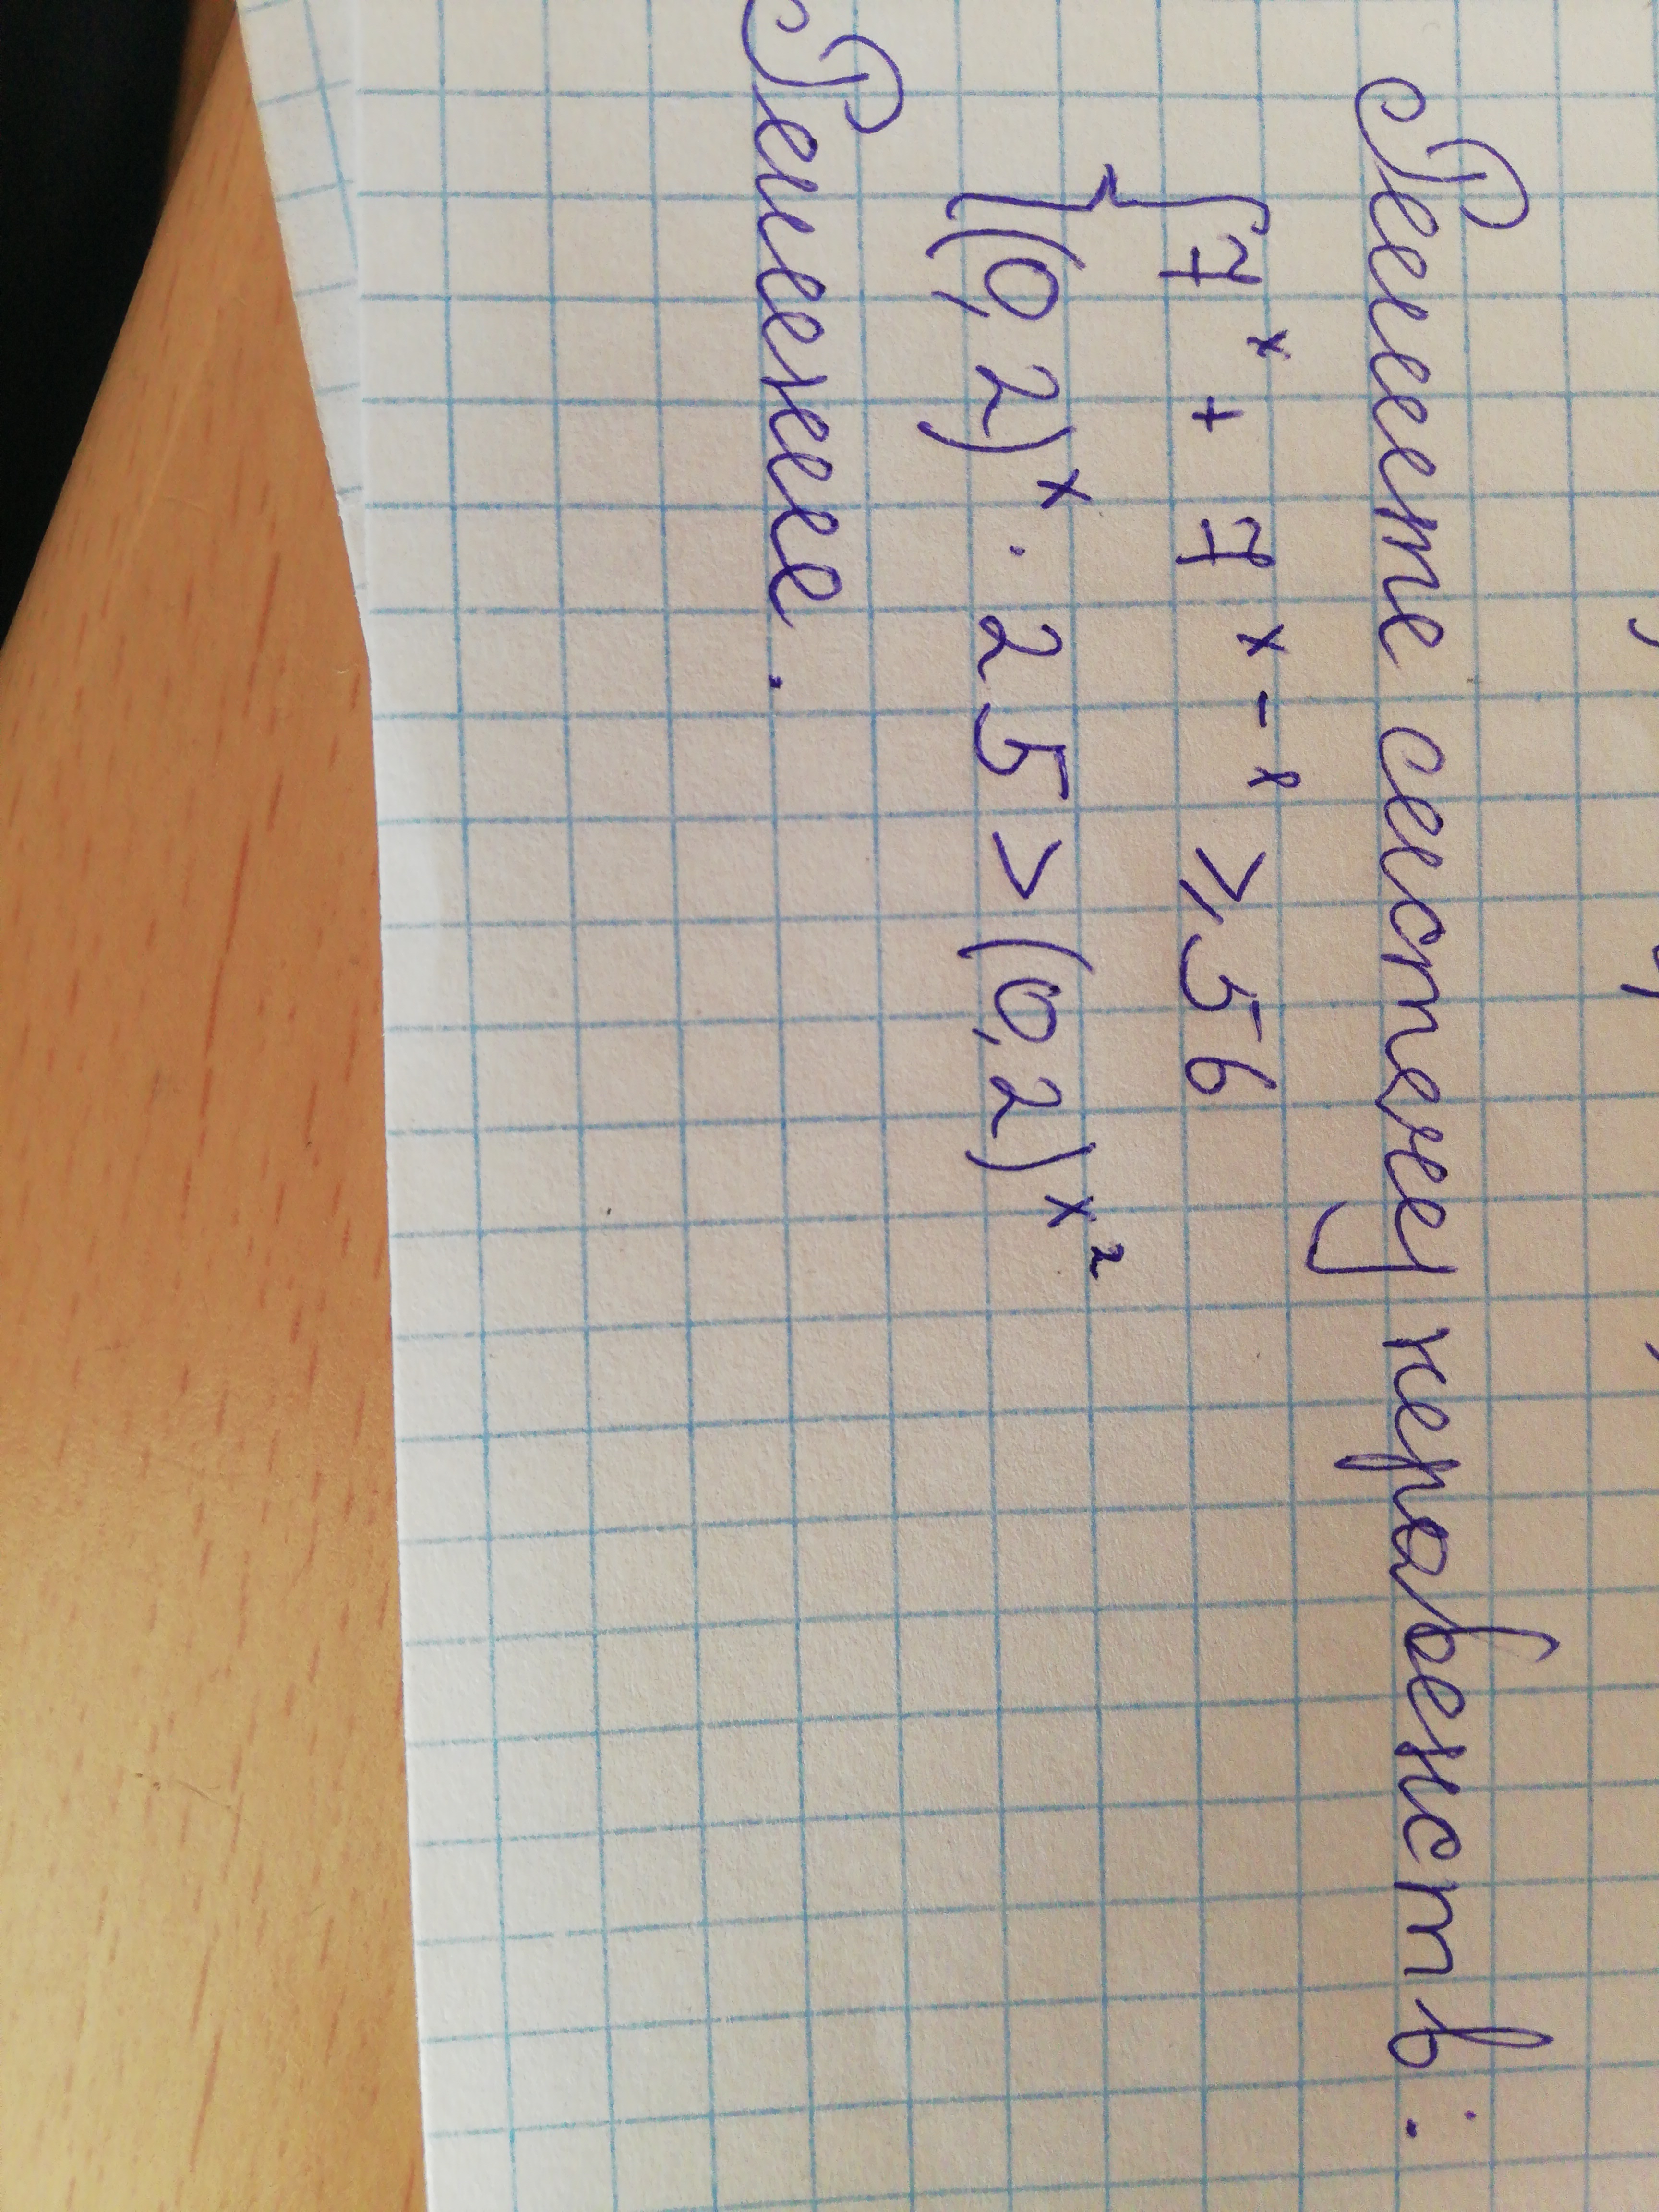 Решите систему неравенств:
{7ˣ + 7ˣ⁻¹ ⩾ 56
(0,2)ˣ · 25 > (0,2)ˣ²
Решение.